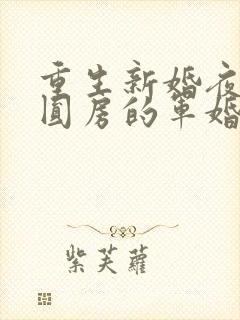 重生新婚夜
圆房的军婚
紫芙蘿